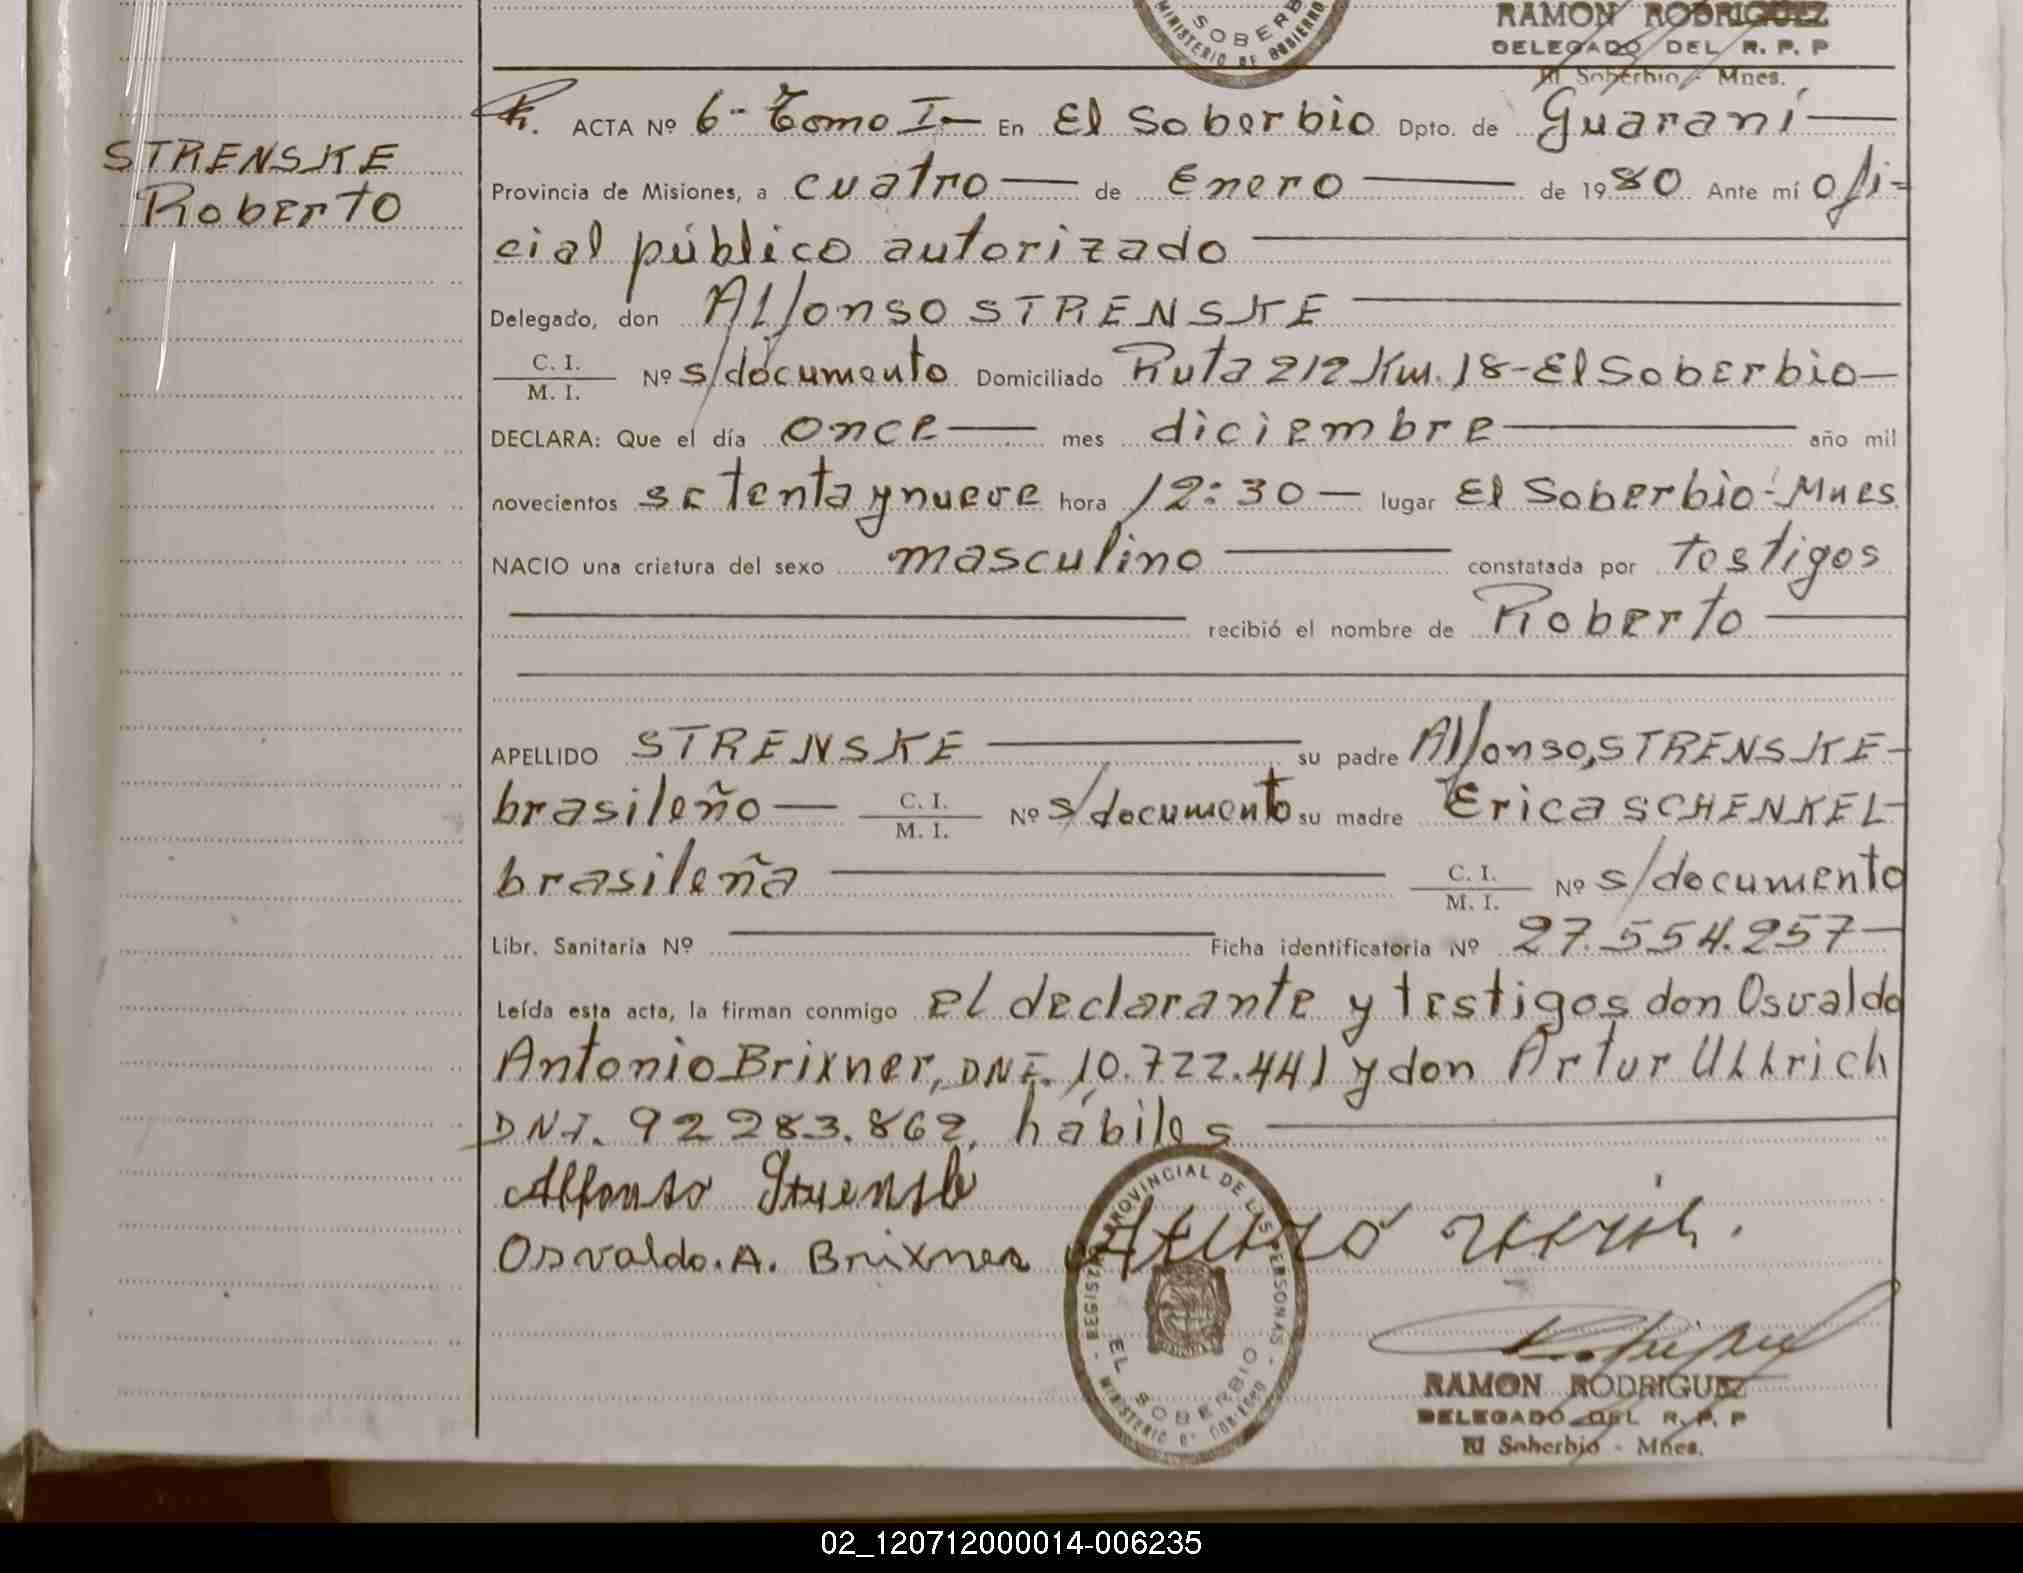 MINISTERIO DE GOBIERNO
SOBERB
RAMON RODRIGUEZ
DELEGADO DEL R. P. P
El Soberbio - Mnes.
STRENSKE
Roberto
ACTA Nº 6 - Tomo I — En El Soberbio Dpto. de Guaraní —
Provincia de Misiones, a cuatro — de Enero — de 1980 Ante mí ofi-
cial público autorizado —
Delegado, don Alfonso STRENSKE —
C. I.
M. I. Nº s/documento Domiciliado Ruta 212 Km. 18 - El Soberbio —
DECLARA: Que el día once — mes diciembre — año mil
novecientos setenta y nueve hora 12:30 — lugar El Soberbio - Mnes
NACIO una crietura del sexo masculino — constatada por testigos
— recibió el nombre de Roberto —
APELLIDO STRENSKE — su padre Alfonso, STRENSKE -
brasileño — C. I.
M. I. Nº s/documento su madre Erica SCHENKEL -
brasileña — C. I.
M. I. Nº s/documento
Libr. Sanitaria Nº — Ficha identificatoria Nº 27.554.257 —
Leída esta acta, la firman conmigo el declarante y testigos don Osvaldo
Antonio Brixner, DNI. 10.722.441 y don Artur Ullrich
DNI. 92283.862, hábiles —
Alfonso Strenske
Osvaldo. A. Brixner
REGISTRO PROVINCIAL DE LAS PERSONAS
EL SOBERBIO
MINISTERIO DE GOBIERNO
RAMON RODRIGUEZ
DELEGADO DEL R. P. P
El Soberbio - Mnes.
02_120712000014-006235